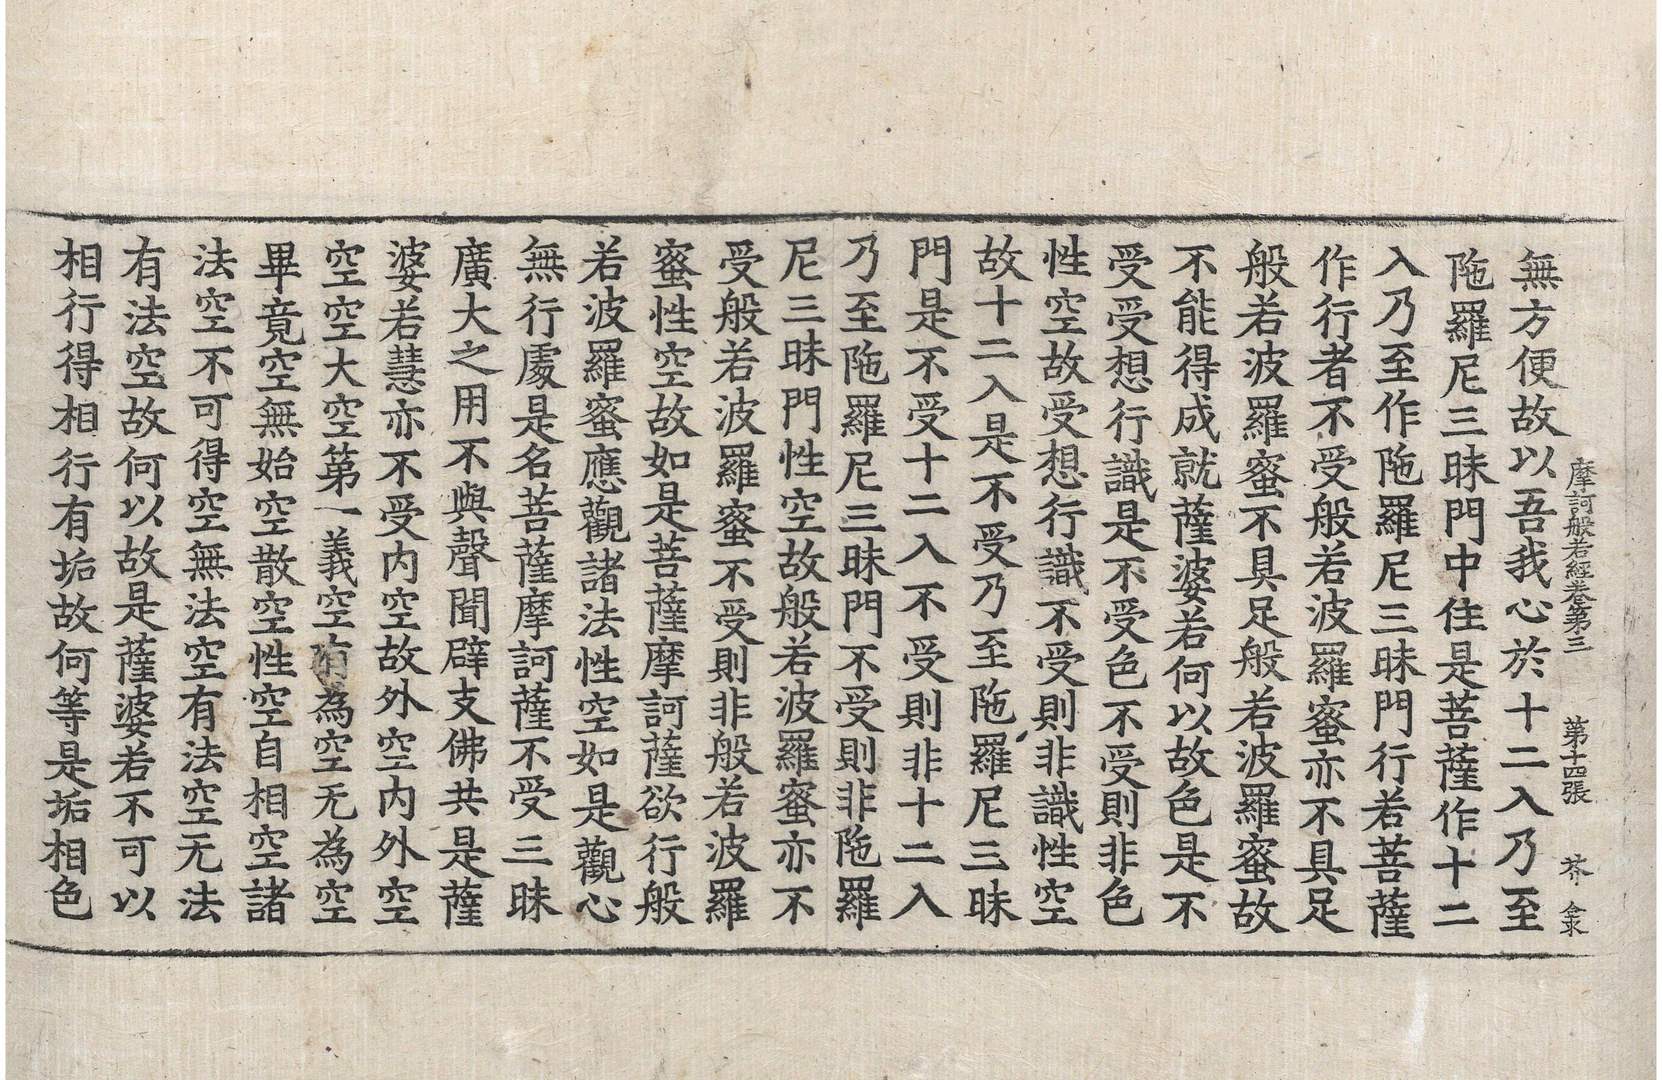 摩訶般若經卷第三 第十四張 芥 僉永
無方便故以吾我心於十二入乃至
陁羅尼三昧門中住是菩薩作十二
入乃至作陁羅尼三昧門行若菩薩
作行者不受般若波羅蜜亦不具足
般若波羅蜜不具足般若波羅蜜故
不能得成就薩婆若何以故色是不
受受想行識是不受色不受則非色
性空故受想行識不受則非識性空
故十二入是不受乃至陁羅尼三昧
門是不受十二入不受則非十二入
乃至陁羅尼三昧門不受則非陁羅
尼三昧門性空故般若波羅蜜亦不
受般若波羅蜜不受則非般若波羅
蜜性空故如是菩薩摩訶薩欲行般
若波羅蜜應觀諸法性空如是觀心
無行處是名菩薩摩訶薩不受三昧
廣大之用不與聲聞辟支佛共是薩
婆若慧亦不受內空故外空內外空
空空大空第一義空有為空无為空
畢竟空無始空散空性空自相空諸
法空不可得空無法空有法空无法
有法空故何以故是薩婆若不可以
相行得相行有垢故何等是垢相色